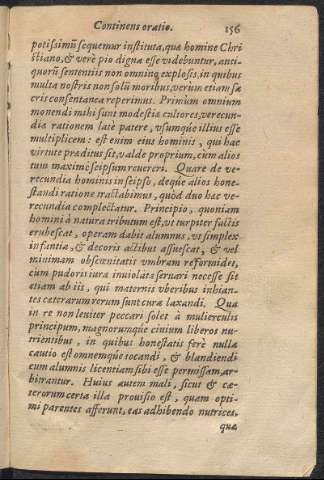 Continens oratio. 156
potissimū sequemur instituta, quæ homine Chri
stiano, & verè pio digna esse videbuntur, anti-
quorū sententiis non omnino explosis, in quibus
multa nostris non solū moribus, verum etiam sa
cris consentanea reperimus. Primùm omnium
monendi mihi sunt modestiæ cultores, verecun-
diæ rationem latè patere, vsumque illius esse
multiplicem: est enim eius hominis, qui hac
virtute præditus sit, valde proprium, cum alios
tum maximè seipsum reuereri. Quare de ve-
recundia hominis in seipso, deque alios hone-
standi ratione tractabimus, quòd duo hæc ve-
recundia complectatur. Principio, quoniam
homini à natura tributum est, vt turpiter factis
erubescat, operam dabit alumnus, vt simplex
infantia, & decoris actibus assuescat, & vel
minimam obscœnitatis vmbram reformidet,
cum pudoris iura inuiolata seruari necesse sit
etiam ab iis, qui maternis vberibus inhian-
tes cæterarum rerum sunt curæ laxandi. Qua
in re non leuiter peccari solet à mulierculis
principum, magnorumque ciuium liberos nu-
trientibus, in quibus honestatis ferè nulla
cautio est omnemque iocandi, & blandiendi
cum alumnis licentiam sibi esse permissam, ar-
bitrantur. Huius autem mali, sicut & cæ-
terorum certa illa prouisio est, quam opti-
mi parentes afferunt, eas adhibendo nutrices,
quæ